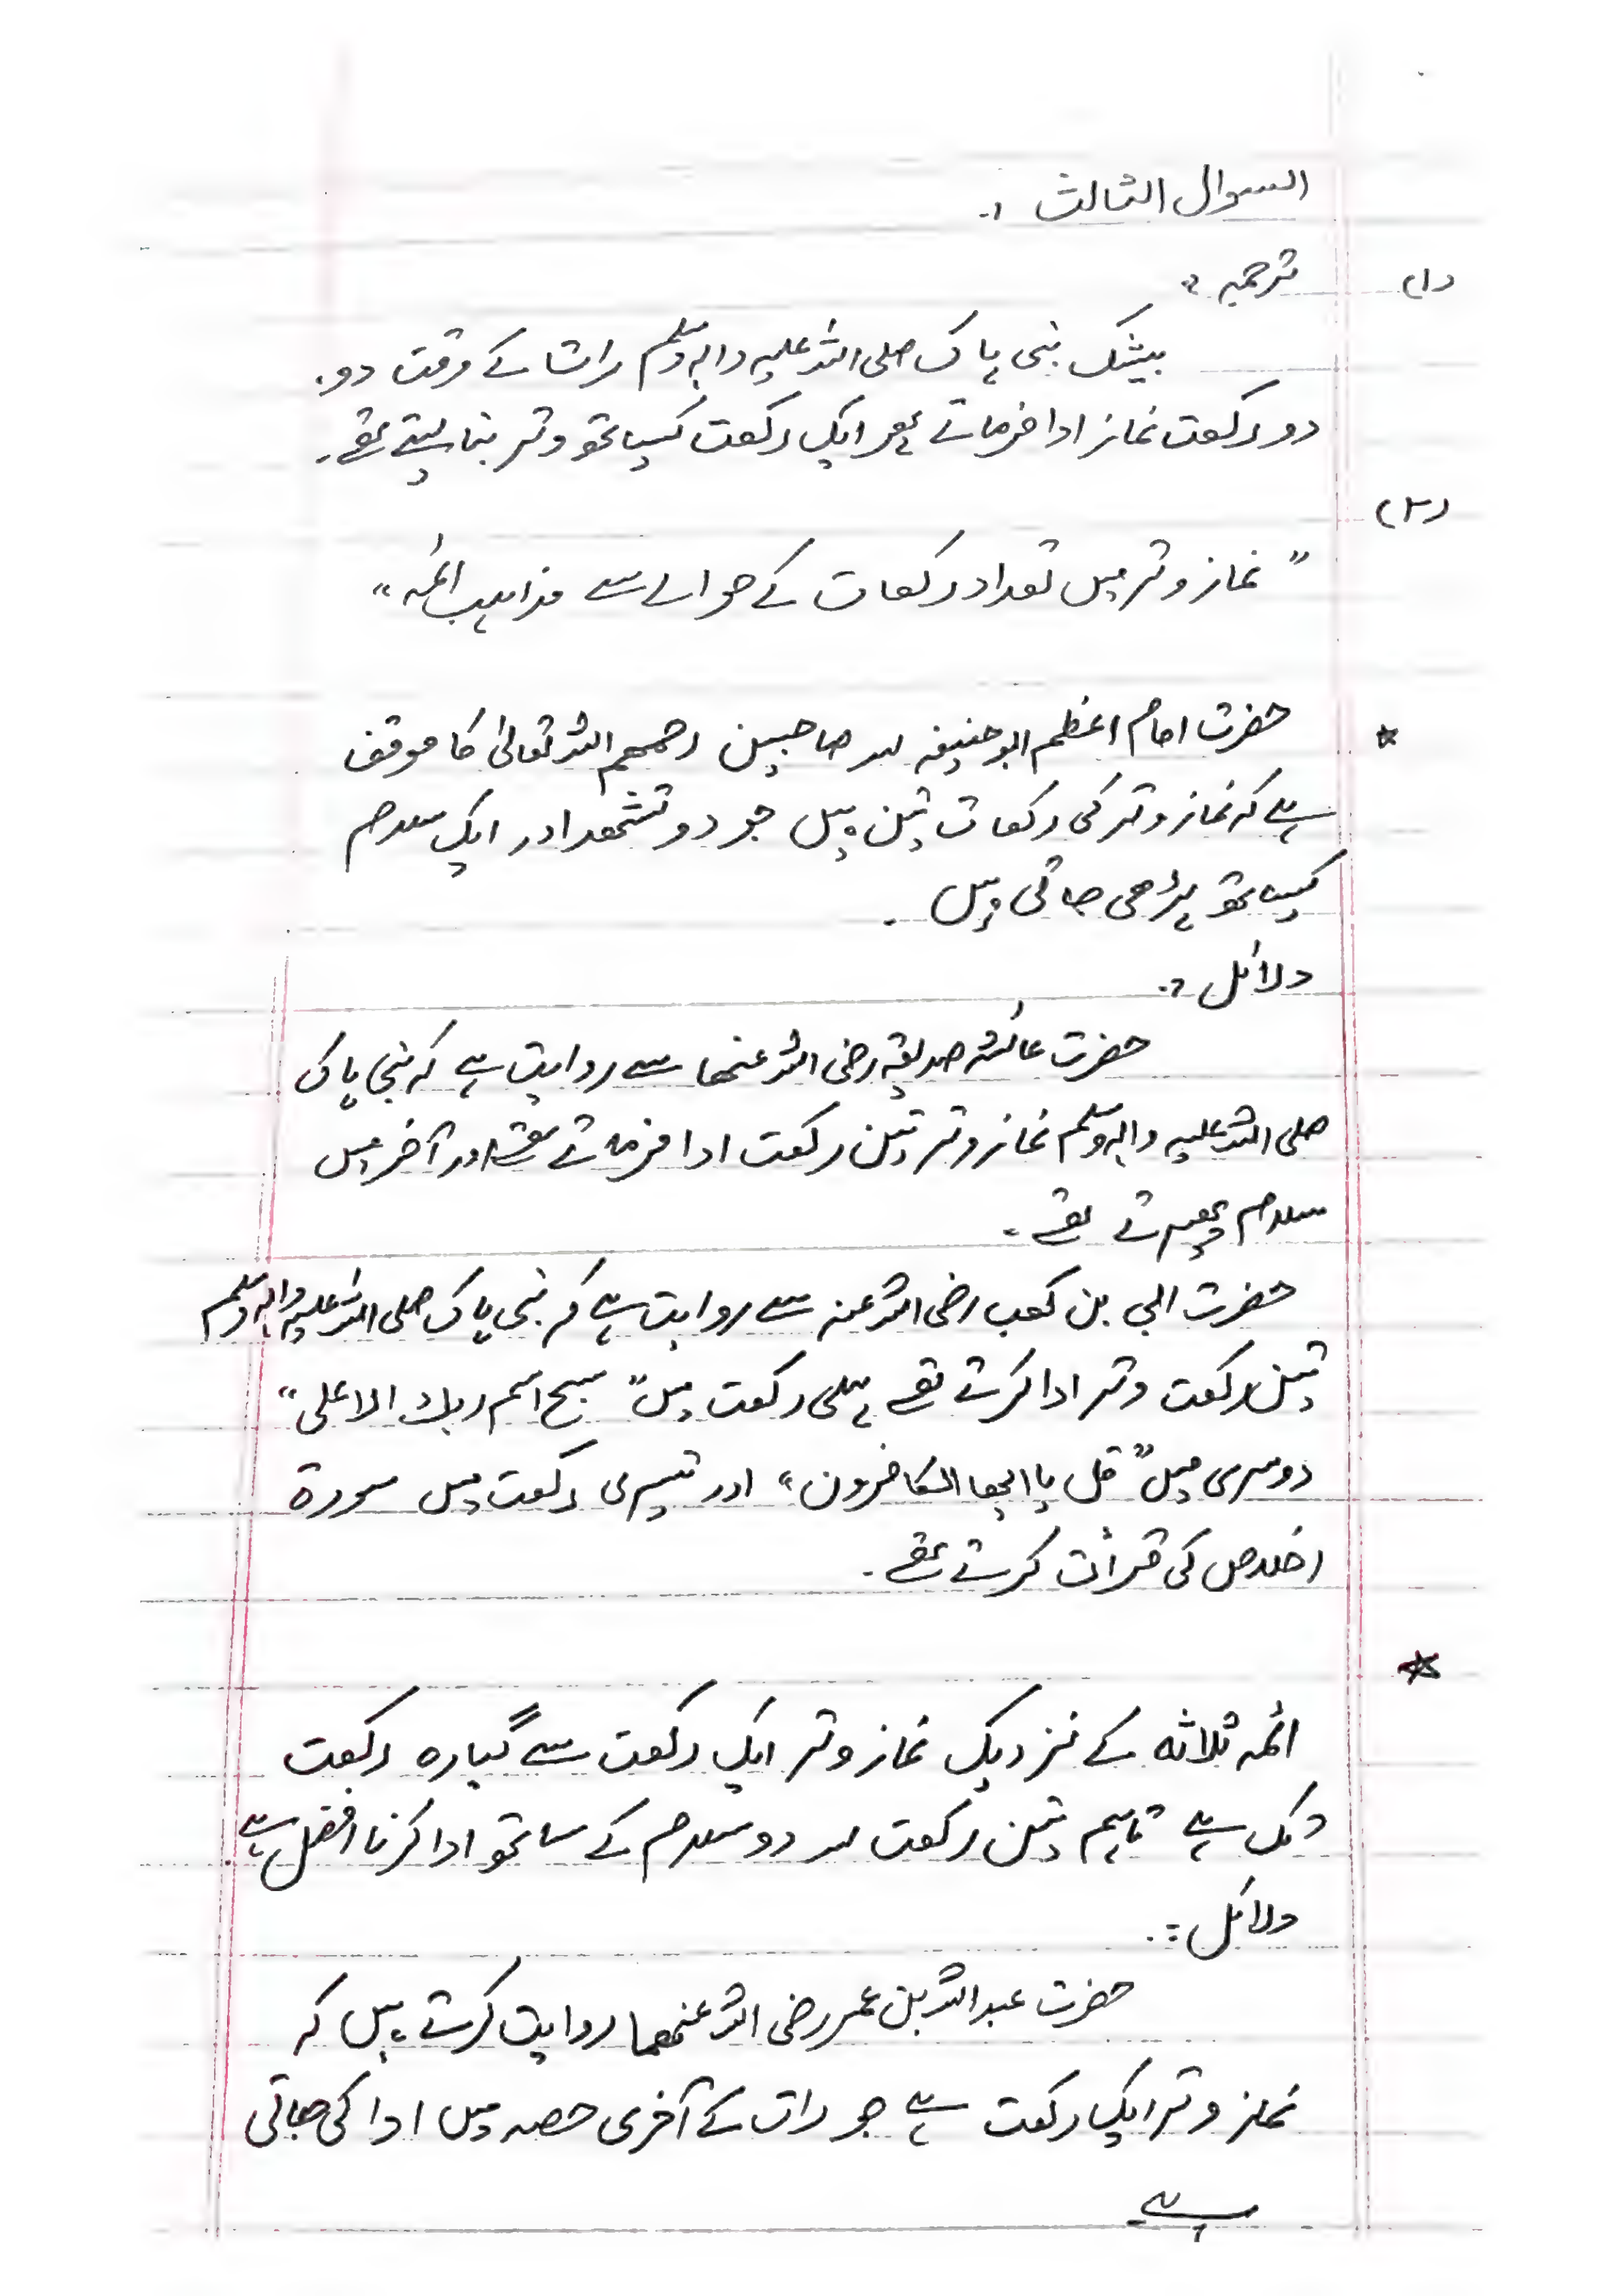 السوال الثالث :.
(۱) ترجمہ :.
بیشک نبی پاک صلی اللہ علیہ والہ وسلم رات کے وقت دو.
دو رکعت نماز ادا فرماتے پھر ایک رکعت کیساتھ وتر بنا لیتے تھے۔
(۲)
" نماز وتر میں تعداد رکعات کے حوالے سے مذاہب ائمہ "
☆ حضرت امام اعظم ابو حنیفہ اور صاحبین رحمھم اللہ تعالیٰ کا موقف
ہے کہ نماز وتر کی رکعات تین ہیں جو دو تشھد اور ایک سلام
کیساتھ پڑھی جاتی ہیں ۔
دلائل :.
حضرت عائشہ صدیقہ رضی اللہ عنھا سے روایت ہے کہ نبی پاک
صلی اللہ علیہ والہ وسلم نماز وتر تین رکعت ادا فرماتے تھے اور آخر میں
سلام پھیرتے تھے ۔
حضرت ابی بن کعب رضی اللہ عنہ سے روایت ہے کہ نبی پاک صلی اللہ علیہ والہ وسلم
تین رکعت وتر ادا کرتے تھے پہلی رکعت میں " سبح اسم ربك الاعلى "
دوسری میں " قل یا ایھا الکافرون " اور تیسری رکعت میں سورۃ
اخلاص کی قرأت کرتے تھے ۔
☆
ائمہ ثلاثہ کے نزدیک نماز وتر ایک رکعت سے گیارہ رکعت
تک ہے تاہم تین رکعت اور دو سلام کے ساتھ ادا کرنا افضل ہے ۔
دلائل :.
حضرت عبد اللہ بن عمر رضی اللہ عنھما روایت کرتے ہیں کہ
نماز وتر ایک رکعت ہے جو رات کے آخری حصہ میں ادا کی جاتی
ہے ۔